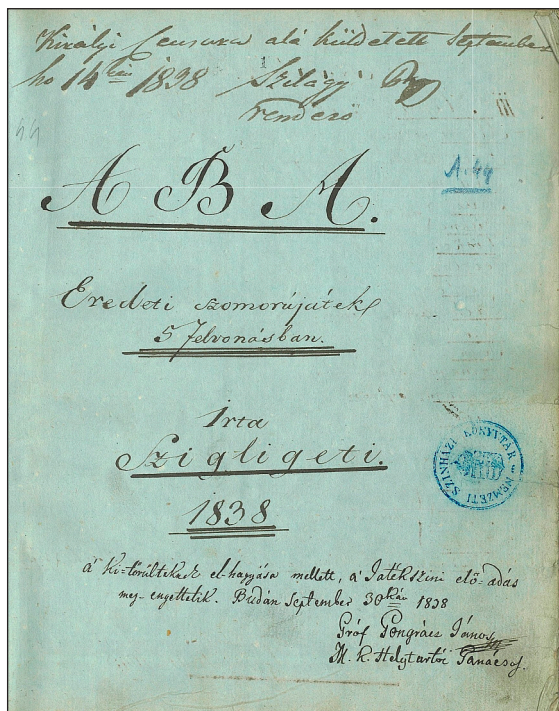 Királyi Censura alá küldetett September
hó 14kén 1838 Szilágyi
rendező
44
A. 44
A B A.
Eredeti szomorújáték
5 felvonásban.
Irta
Szigligeti.
1838
NEMZETI SZINHÁZ KÖNYVTÁR
a ki-törülteknek el-hagyása mellett, a Játékszini elő-adás
meg-engettetik. Budán September 30kán 1838
Gróf Pongrácz János
M. K. Helytartói Tanácsos.